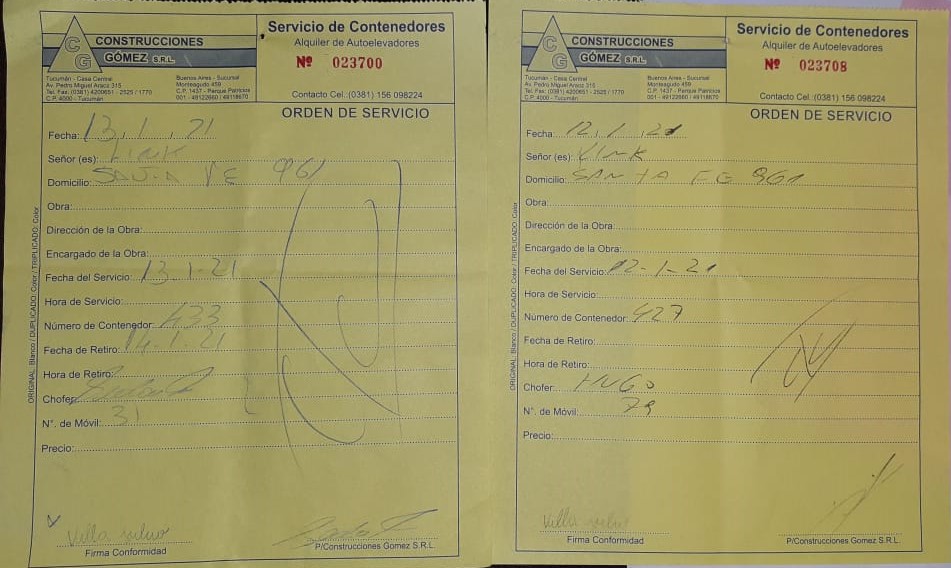 CG CONSTRUCCIONES
GÓMEZ S.R.L.
Tucumán - Casa Central
Av. Pedro Miguel Araoz 315
Tel. Fax: (0381) 4200651 - 2525 / 1770
C.P. 4000 - Tucumán
Buenos Aires - Sucursal
Monteagudo 459
C.P. 1437 - Parque Patricios
001 - 49122660 / 49118670
Servicio de Contenedores
Alquiler de Autoelevadores
Nº 023700
Contacto Cel.:(0381) 156 098224
ORDEN DE SERVICIO
Fecha: 13.1.21
Señor (es): LINK
Domicilio: SANTA FE 961
Obra:
Dirección de la Obra:
Encargado de la Obra:
Fecha del Servicio: 13-1-21
Hora de Servicio:
Número de Contenedor: 433
Fecha de Retiro: 14-1-21
Hora de Retiro:
Chofer:
N°. de Móvil: 31
Precio:
ORIGINAL: Blanco / DUPLICADO: Color / TRIPLICADO: Color
Firma Conformidad
P/Construcciones Gomez S.R.L.
CG CONSTRUCCIONES
GÓMEZ S.R.L.
Tucumán - Casa Central
Av. Pedro Miguel Araoz 315
Tel. Fax: (0381) 4200651 - 2525 / 1770
C.P. 4000 - Tucumán
Buenos Aires - Sucursal
Monteagudo 459
C.P. 1437 - Parque Patricios
001 - 49122660 / 49118670
Servicio de Contenedores
Alquiler de Autoelevadores
Nº 023708
Contacto Cel.:(0381) 156 098224
ORDEN DE SERVICIO
Fecha: 12.1.21
Señor (es): LINK
Domicilio: SANTA FE 961
Obra:
Dirección de la Obra:
Encargado de la Obra:
Fecha del Servicio: 12-1-21
Hora de Servicio:
Número de Contenedor: 427
Fecha de Retiro:
Hora de Retiro:
Chofer: HUGO
N°. de Móvil: 79
Precio:
ORIGINAL: Blanco / DUPLICADO: Color / TRIPLICADO: Color
Firma Conformidad
P/Construcciones Gomez S.R.L.